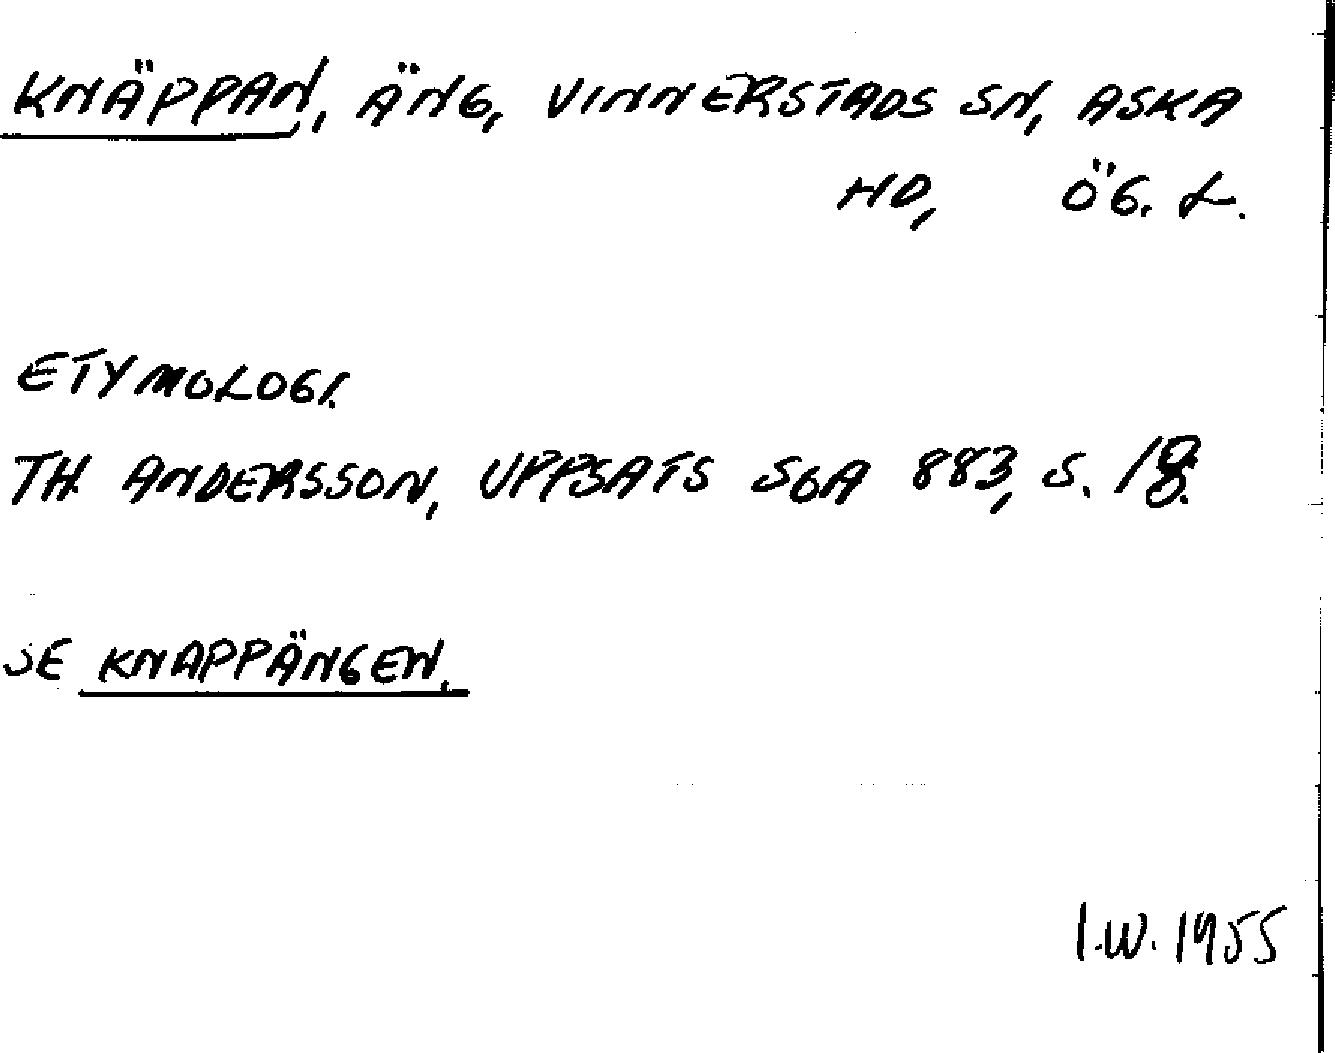 KNÄPPAN, ÄNG, VINNERSTADS SN, ASKA
HD, ÖG. L.
ETYMOLOGI.
TH. ANDERSSON, UPPSATS SOA 883, S. 18.
SE KNAPPÄNGEN.
I.W. 1955